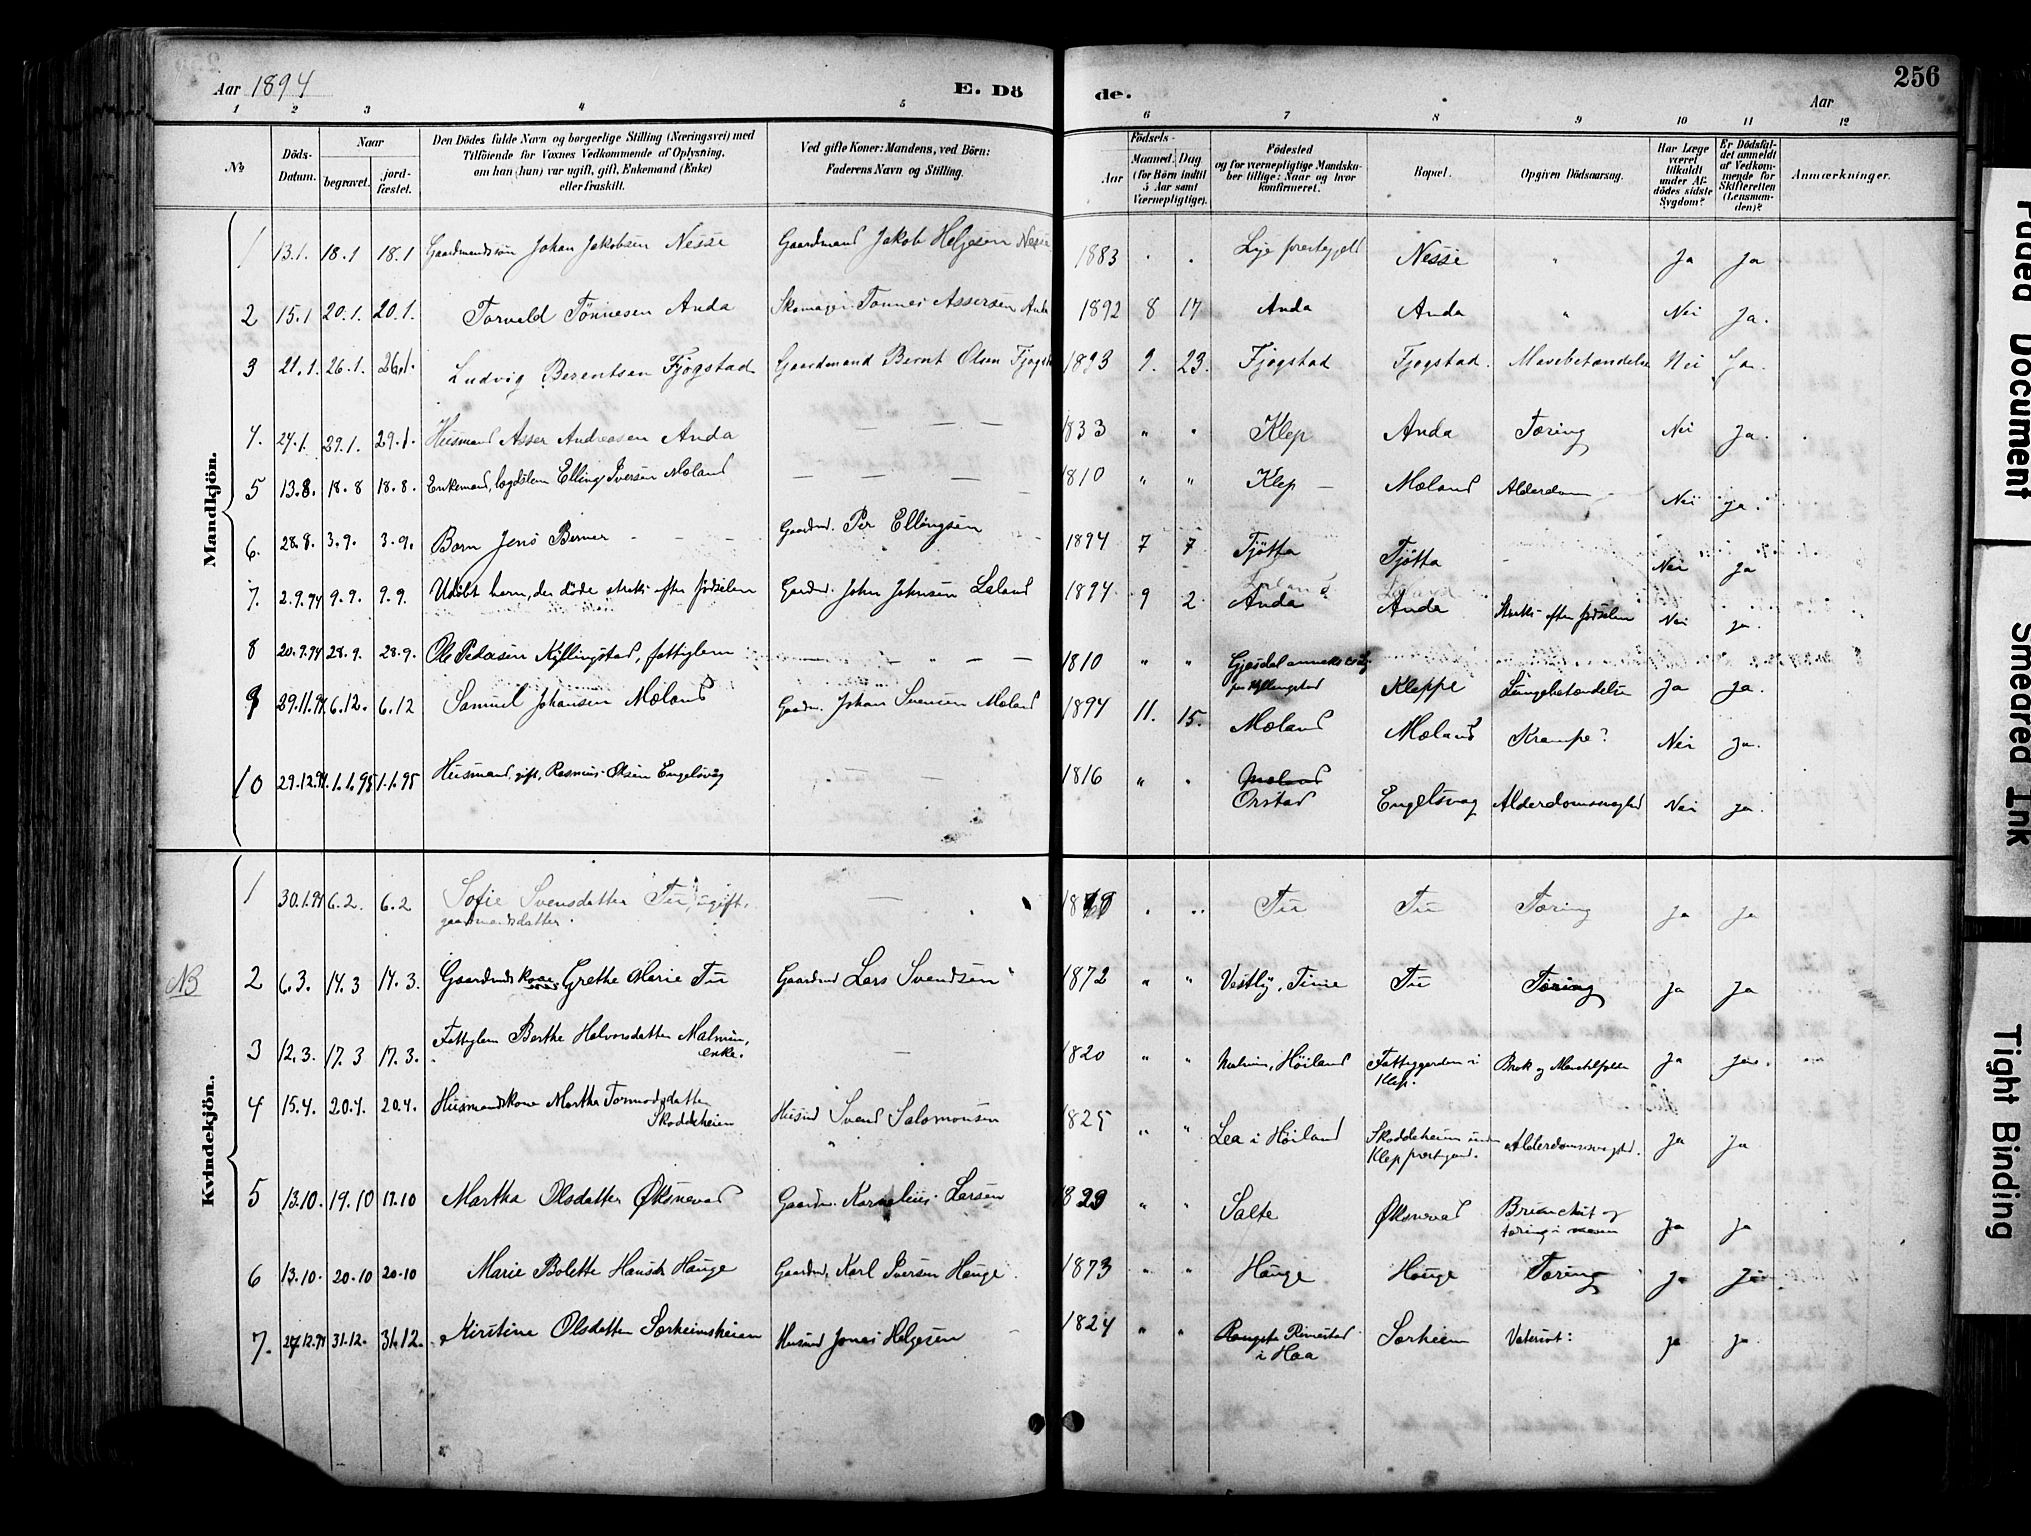 256
Aar 1894
E. Dö
de.
Aar
1 2 3 4 5 6 7 8 9 10 11 12
No
Döds-Datum.
Naar
begravet.
jord-fæstet.
Den Dödes fulde Navn og borgerlige Stilling (Næringsvei) med
Tilföiende for Voxnes Vedkommende af Oplysning,
om han (hun) var ugift, gift, Enkemand (Enke)
eller fraskilt.
Ved gifte Koner: Mandens, ved Börn:
Faderens Navn og Stilling.
Födsels-
Aar
Maaned.
Dag
(for Börn indtil
5 Aar samt
Værnepligtige).
Födested
og for værnepligtige Mandska-
ber tillige: Naar og hvor
konfirmeret.
Bopæl.
Opgiven Dödsaarsag.
Har Læge
været
tilkaldt
under Af-
dödes sidste
Sygdom?
Er Dödsfal-
det anmeldt
af Vedkom-
mende for
Skifteretten
(Lensman-
den)?
Anmærkninger.
Mandkjön.
1 13.1. 18.1 18.1 Gaardmandssön Johan Jakobsen Nesse Gaardmand Jakob Helgesen Nesse 1883 " " Lye prestegjeld Nesse " Ja Ja
2 15.1 20.1. 20.1. Torvald Tönnesen Anda Skomager Tönnes Assersen Anda 1892 8 17 Anda Anda " Nei Ja.
3 21.1. 26.1. 26.1. Ludvig Berentsen Fjogstad Gaardmand Bernt Olsen Fjogstad 1893 9. 23. Fjogstad Fjogstad. Mavebetændelse Nei Ja.
4. 24.1. 29.1. 29.1. Husmand Asser Andreasen Anda — — — 1833 " " Klep Anda Tæring Nei Ja.
5 13.8. 18.8 18.8. Enkemand, lægdslem Elling Iversen Mæland — — — 1810 " " Klep Mæland Alderdom Nei Ja.
6. 28.8. 3.9. 3.9. Barn Jens Berner Gaardm. Per Ellingsen 1894 7 7 Tjötta Tjötta Nei Ja
7. 2.9.94 9.9. 9.9. Udöbt barn, der döde straks efter födselen Gaardm. John Johnsen Laland 1894 9 2. Anda Anda Straks efter födselen Nei Ja.
8 20.9.94 28.9. 28.9. Ole Pedersen Kyllingstad, fattiglem — — — 1810 " " Gjesdal anneks
Kyllingstad Kleppe Lungebetændelse Ja Ja.
9 29.11.94 6.12. 6.12 Samuel Johansen Mæland Gaardm. Johan Svensen Mæland 1894 11. 15. Mæland Mæland Krampe? Nei Ja.
10 29.12.94. 1.1.95 1.1.95 Husmand, gift, Rasmus Olsen Engelsvåg 1816 " " Mæland
Orstad Engelsvag Alderdomssvaghed Nei Ja.
Kvindekjön.
1 30.1.94 6.2. 6.2 Sofie Svensdatter Tu, ugift,
gaardmandsdatter. — Tu Tu Tæring Ja Ja
NB 2 6.3. 14.3 14.3. Gaardmdskone Grethe Marie Tu Gaardmd Lars Svendsen 1872 " " Vestly, Time Tu Tæring Ja Ja
3 12.3. 17.3 17.3. Fattiglem Berthe Halvorsdatter Malmin,
enke. — 1820 " " Malmin, Höiland Fattiggarden i
Klep. Brok og Ja Ja.
4 15.4. 20.4. 20.4. Husmandskone Martha Tormodsdatter
Skoddeheien Husmd Svend Salomonsen 1825 " " Lea i Höiland Skoddeheien under
Klep prestegard. Alderdomssvaghed. Ja Ja
5 13.10. 19.10 19.10 Martha Olsdatter Øksnevad Gaardm. Kornelius Larsen 1829 " " Salte Øksnevad og
tæring i maven Ja Ja
6 13.10. 20.10 20.10 Marie Bolette Hansdr Hauge Gaardmd. Karl Iversen Hauge. 1873 " " Hauge Hauge Tæring Ja Ja
7. 27.12.94 31.12. 31.12. Kirstine Olsdatter Sørheimsheien Husmd Jonas Helgesen 1824 " " Rimestad
i Haa Sørheim Vatersot: Ja Ja.
Faded Document
Smeared Ink
Tight Binding